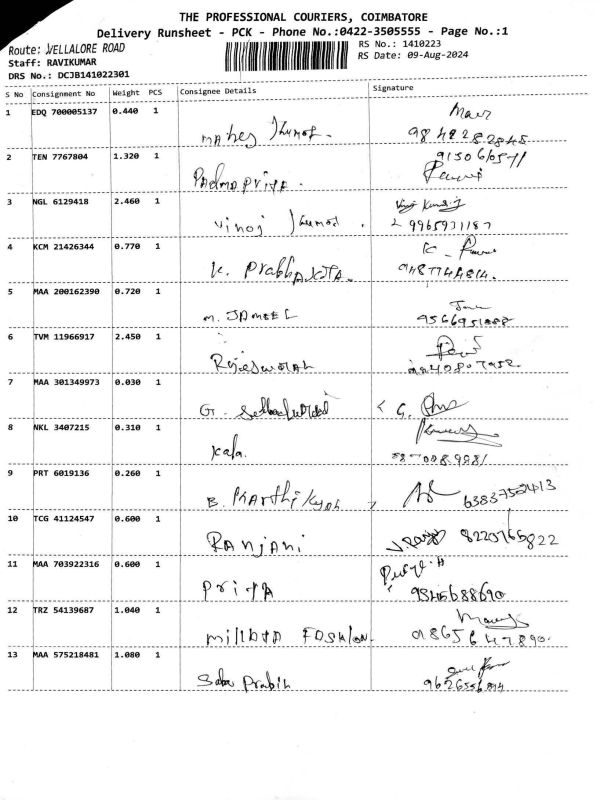 THE PROFESSIONAL COURIERS, COIMBATORE
Delivery Runsheet - PCK - Phone No.:0422-3505555 - Page No.:1
Route: VELLALORE ROAD
RS No.: 1410223
Staff: RAVIKUMAR
RS Date: 09-Aug-2024
DRS No.: DCJB141022301
S No Consignment No Weight PCS Consignee Details Signature
1 EDQ 700005137 0.440 1
2 TEN 7767804 1.320 1
Padmapriya.
3 NGL 6129418 2.460 1
Vinoj Kumar. 9965931187
4 KCM 21426344 0.770 1
K. Prabhakara. 9487744814.
5 MAA 200162390 0.720 1
M. JAMEEL
6 TVM 11966917 2.450 1
7 MAA 301349973 0.030 1
G.
8 NKL 3407215 0.310 1
Kala.
9 PRT 6019136 0.260 1
B. Karthikyan
10 TCG 41124547 0.600 1
Ranjani 8220765822
11 MAA 703922316 0.600 1
Priya
12 TRZ 54139687 1.040 1
FASHION. 9865647890.
13 MAA 575218481 1.080 1